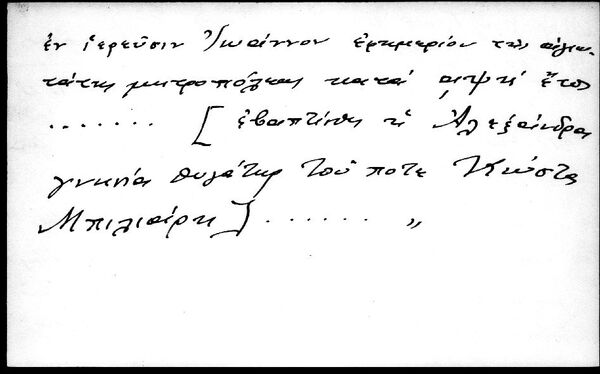 ἐν ἱερεῦσιν Ἰωάννου ἐφημερίου τῆς ἁγιω-
τάτης μητροπόλεως κατὰ αψπί ἔτος
....... [ἐβαπτίσθη ἡ Ἀλεξάνδρα
γνησία θυγάτηρ τοῦ ποτε Κώστα
Μπιλιάρη] ...... „